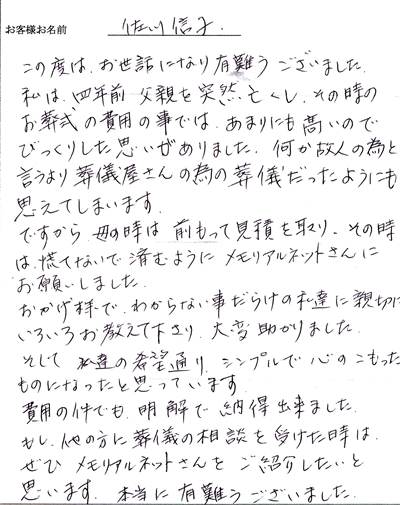 お客様お名前 佐川信子.
この度は、お世話になり有難うございました.
私は、四年前 父親を突然亡くし、その時の
お葬式の費用の事では、あまりにも高いので
びっくりした思いがありました。何か故人の為と
言うより葬儀屋さんの為の葬儀だったようにも
思えてしまいます.
ですから 母の時は 前もって見積を取り、その時
は、慌てないで済むように メモリアルネットさんに
お願いしました.
おかげ様で、わからない事だらけの私達に親切に
いろいろお教えて下さり、大変助かりました.
そして 私達の希望通り、シンプルで心のこもった
ものになったと思っています.
費用の件でも、明解で納得出来ました.
もし、他の方に葬儀の相談を受けた時は、
ぜひ メモリアルネットさんを ご紹介したいと
思います. 本当に有難うございました.